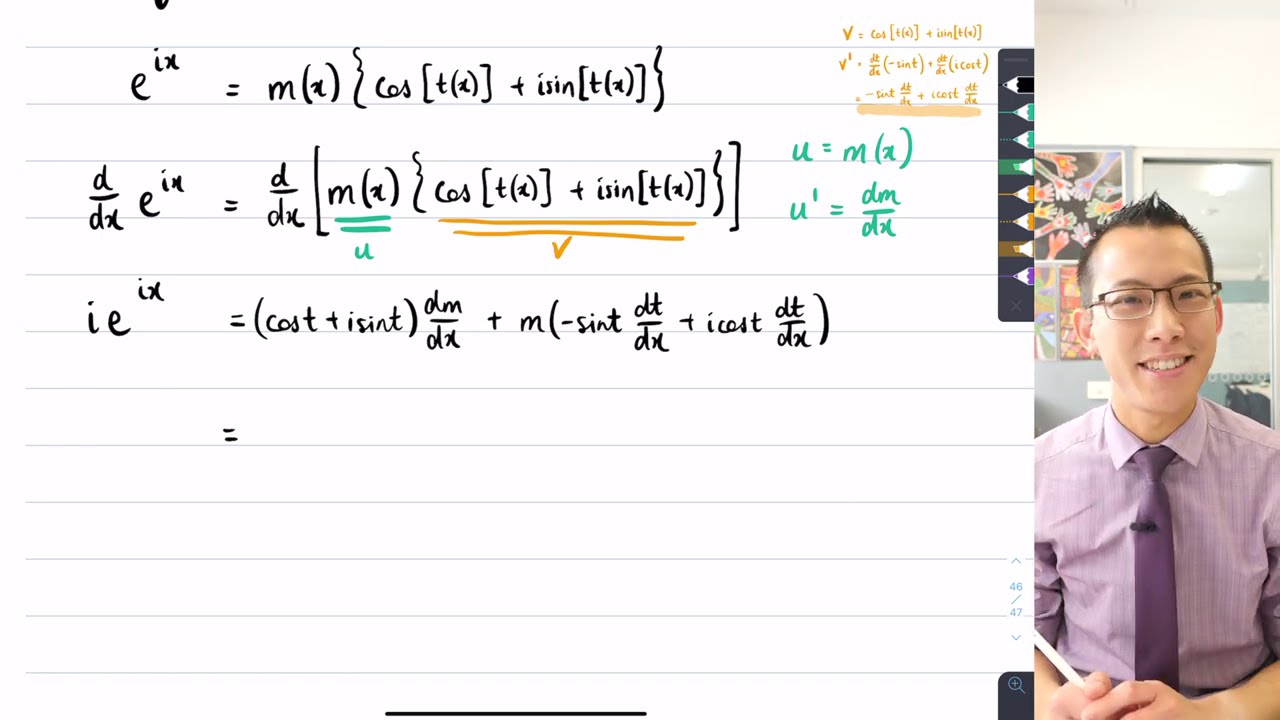 e^{ix} = m(x) {cos [t(x)] + isin[t(x)]}
d/dx e^{ix} = d/dx [m(x) {cos [t(x)] + isin[t(x)]}]
u
v
ie^{ix} = (cost + isint) dm/dx + m(-sint dt/dx + icost dt/dx)
=
v = cos [t(x)] + isin[t(x)]
v' = dt/dx (-sint) + dt/dx (icost)
= -sint dt/dx + icost dt/dx
u = m(x)
u' = dm/dx
46
/
47